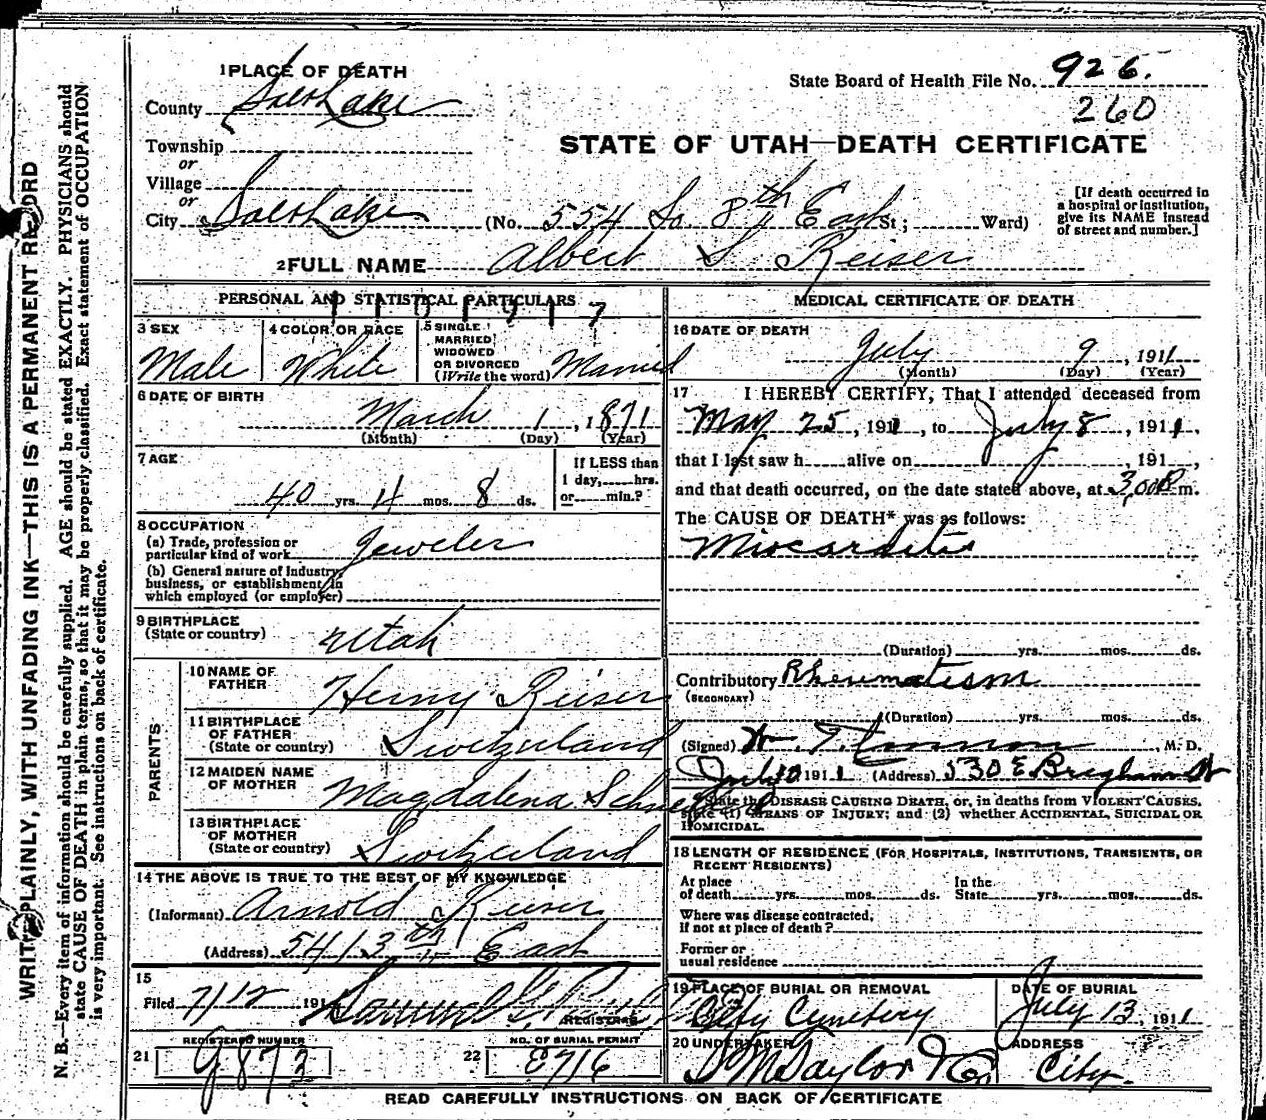 WRITE PLAINLY, WITH UNFADING INK—THIS IS A PERMANENT RECORD
N. B.—Every item of information should be carefully supplied. AGE should be stated EXACTLY. PHYSICIANS should
state CAUSE OF DEATH in plain terms, so that it may be properly classified. Exact statement of OCCUPATION
is very important. See instructions on back of certificate.
1 PLACE OF DEATH
County Salt Lake
Township
or
Village
or
City Salt Lake
State Board of Health File No. 926.
260
STATE OF UTAH—DEATH CERTIFICATE
(No. 554 So. 8th East St; Ward)
[If death occurred in
a hospital or institution,
give its NAME instead
of street and number.]
2 FULL NAME Albert S Reiser
PERSONAL AND STATISTICAL PARTICULARS
110197
3 SEX
Male
4 COLOR OR RACE
White
5 SINGLE
MARRIED
WIDOWED
OR DIVORCED
(Write the word) Married
6 DATE OF BIRTH
March 1, 1871
(Month) (Day) (Year)
7 AGE
40 yrs. 4 mos. 8 ds.
If LESS than
1 day, hrs.
or min.?
8 OCCUPATION
(a) Trade, profession or
particular kind of work Jeweler
(b) General nature of industry,
business, or establishment in
which employed (or employer)
9 BIRTHPLACE
(State or country) Utah
PARENTS
10 NAME OF
FATHER Henry Reiser
11 BIRTHPLACE
OF FATHER
(State or country) Switzerland
12 MAIDEN NAME
OF MOTHER Magdalena
13 BIRTHPLACE
OF MOTHER
(State or country) Switzerland
14 THE ABOVE IS TRUE TO THE BEST OF MY KNOWLEDGE
(Informant) Arnold Reiser
(Address) 541 3th East
15
Filed 7/12 191 Samuel G.
REGISTRAR
REGISTERED NUMBER
21 G873
NO. OF BURIAL PERMIT
22 E716
MEDICAL CERTIFICATE OF DEATH
16 DATE OF DEATH
July 9, 1911
(Month) (Day) (Year)
17 I HEREBY CERTIFY, That I attended deceased from
May 25, 1911, to July 8, 1911,
that I last saw h alive on , 191 ,
and that death occurred, on the date stated above, at 3,00 P m.
The CAUSE OF DEATH* was as follows:
Miocarditis
(Duration) yrs. mos. ds.
Contributory Rheumatism
(SECONDARY)
(Duration) yrs. mos. ds.
(Signed) Wm. T. Cannon, M. D.
July 10 1911 (Address) 530 E Brigham St
*State the DISEASE CAUSING DEATH, or, in deaths from VIOLENT CAUSES,
state (1) MEANS OF INJURY; and (2) whether ACCIDENTAL, SUICIDAL OR
HOMICIDAL.
18 LENGTH OF RESIDENCE (FOR HOSPITALS, INSTITUTIONS, TRANSIENTS, OR
RECENT RESIDENTS)
At place
of death yrs. mos. ds.
In the
State yrs. mos. ds.
Where was disease contracted,
if not at place of death?
Former or
usual residence
19 PLACE OF BURIAL OR REMOVAL
City Cemetery
DATE OF BURIAL
July 13, 1911
20 UNDERTAKER
S M Taylor & Co
ADDRESS
City.
READ CAREFULLY INSTRUCTIONS ON BACK OF CERTIFICATE